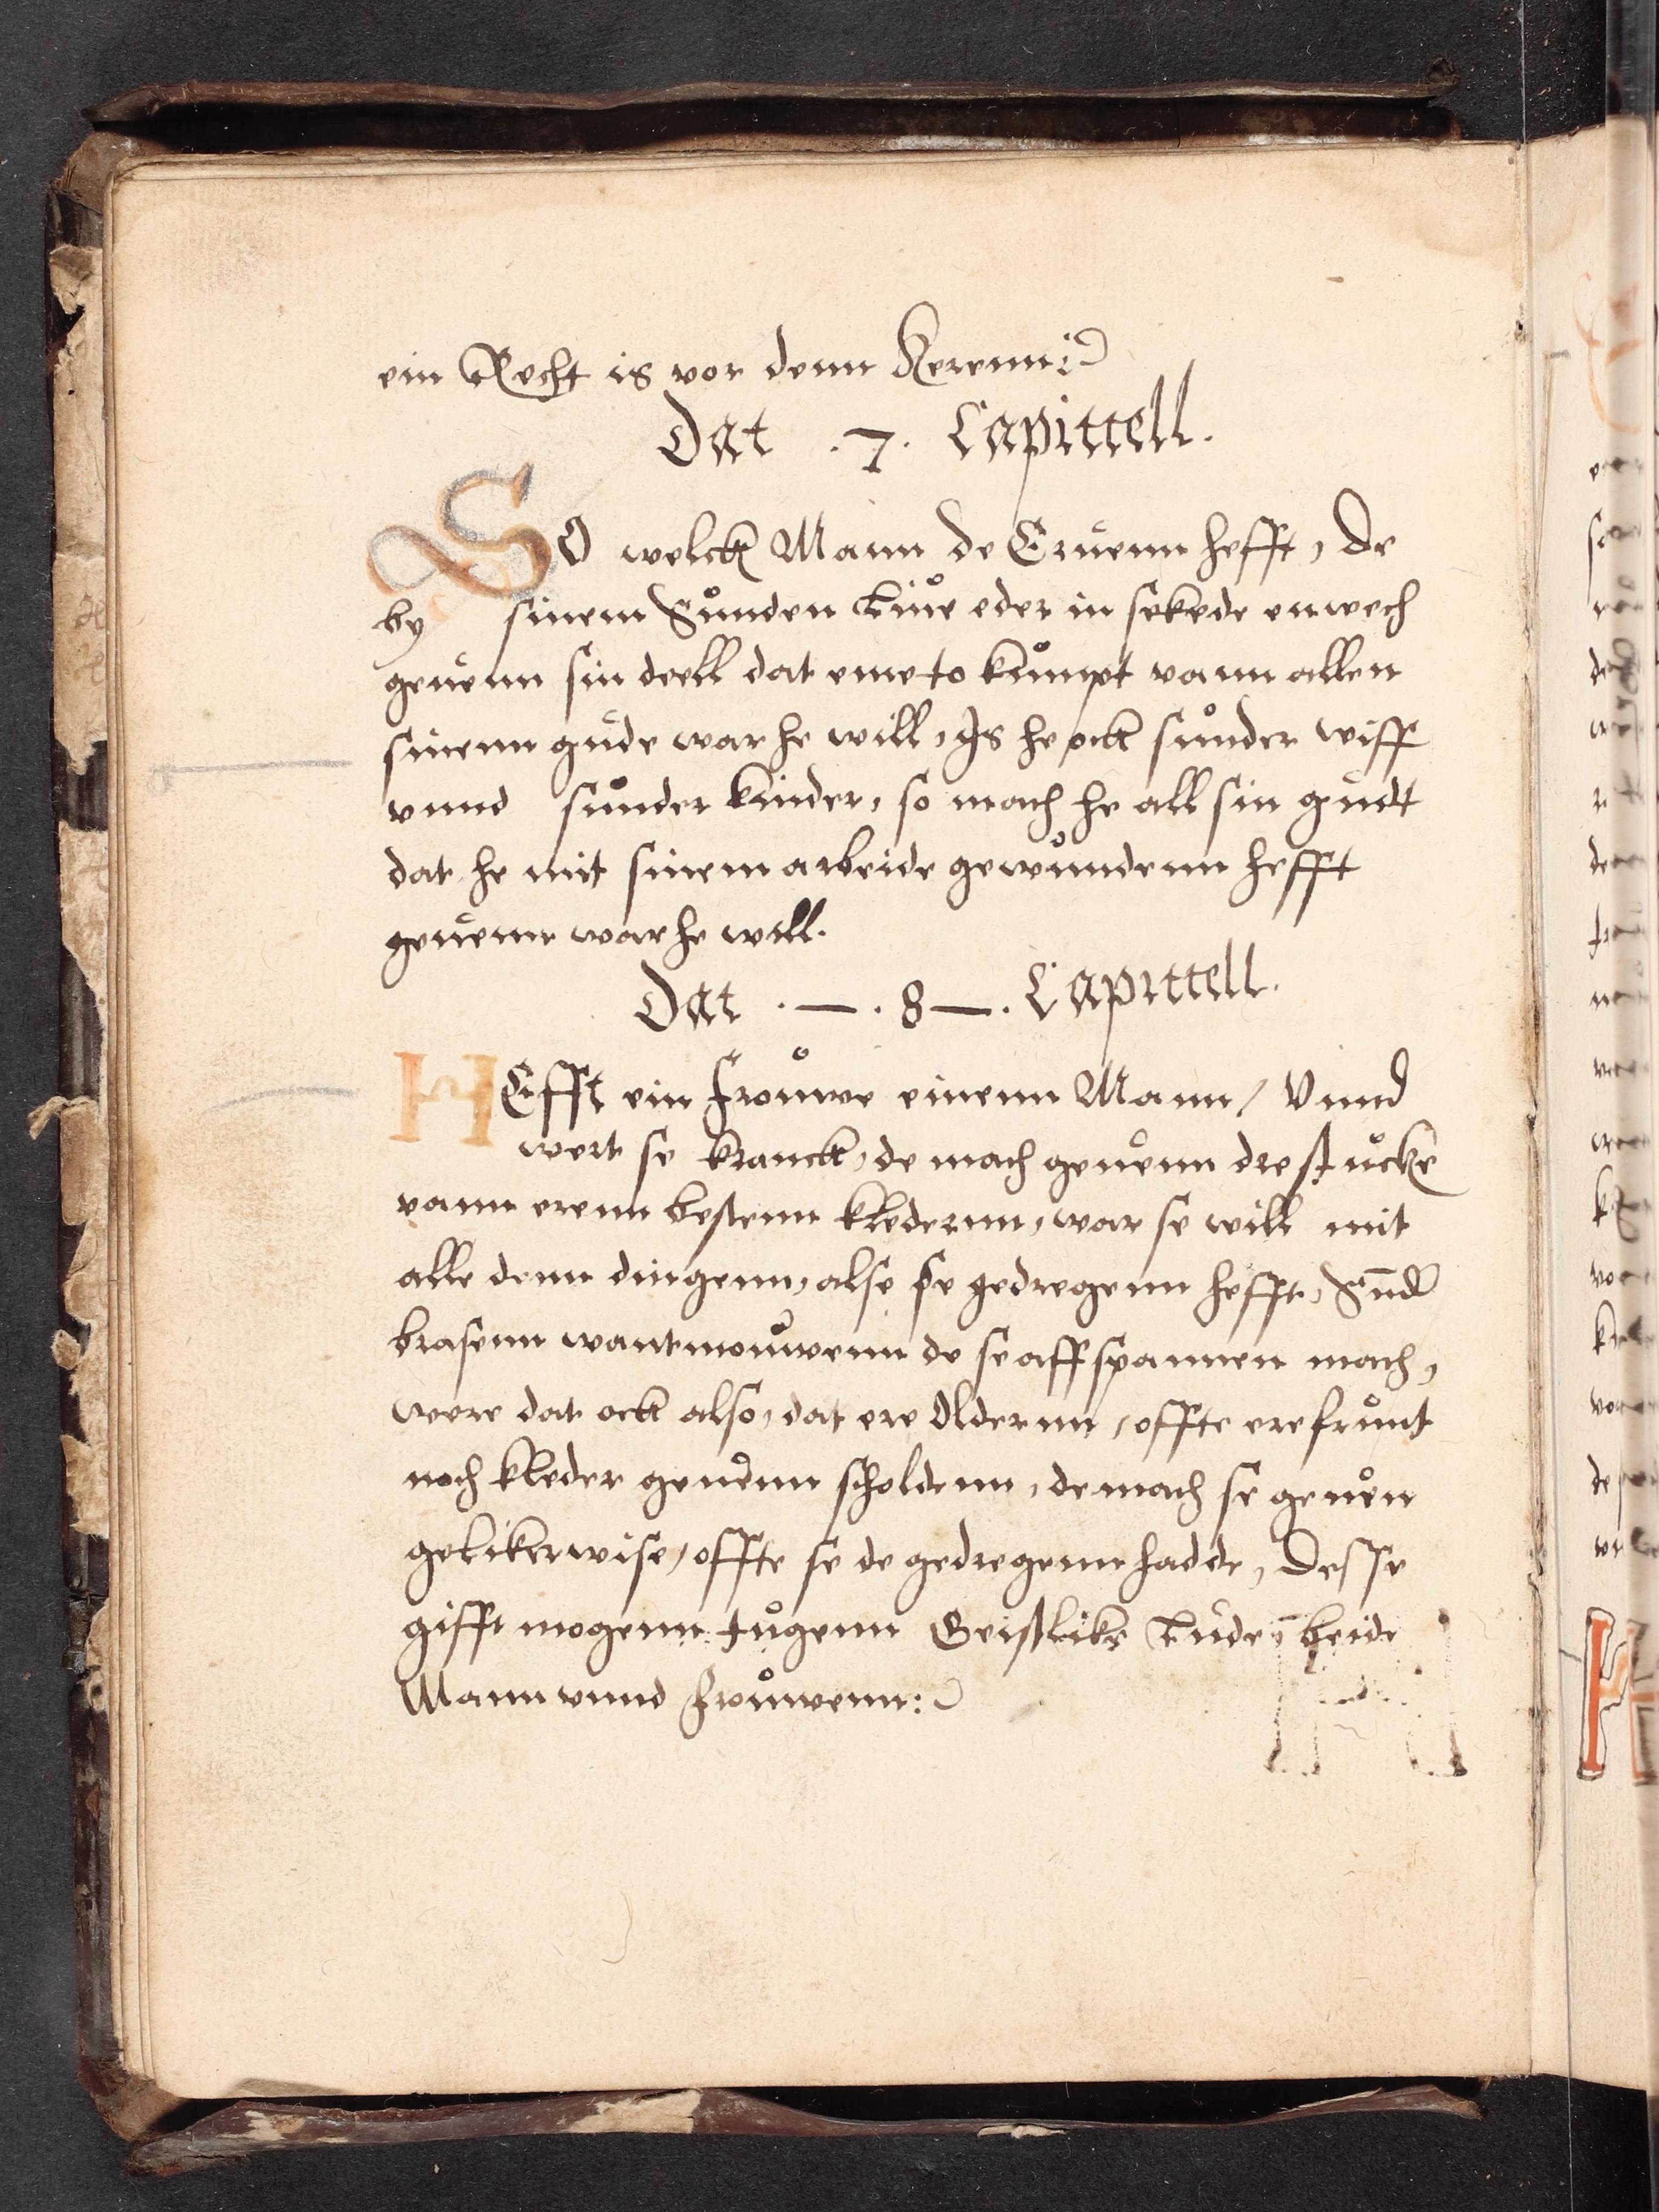 ein Recht is vor denn Kerenn:
Dat .7. Capittell.
SO welck Mann de Eruenn hefft, de
by sinem Sunden Liue eder in sekede enwech
geuenn sin deell dat eme to kumpt vann allen
sinenn gude war he will, Is he ock sunder wiff
vnnd sunder kinder, so mach he all sin gudt
dat he mit sinem arbeide gewundenn hefft
geuenn war he will.
Dat .—. 8—. Capittell.
HEfft ein frouwe einenn Mann / Vnnd
wert se kranck, de mach geuenn dre stucke
vann erenn bestenn klederenn, war se will mit
alle denn dingenn, alse se gedregenn hefft, Sund
brasenn wantmouwenn de se aff spannen mach,
were dat ock also, dat ere Olderenn, offte ere frunt
noch kleder geuenn scholdenn, de mach se geuen
gelikerwise, offte se de gedregenn hadde, Desse
gifft mogenn tugenn Geistlike Lude, beide
Mann vnnd Frouwenn: